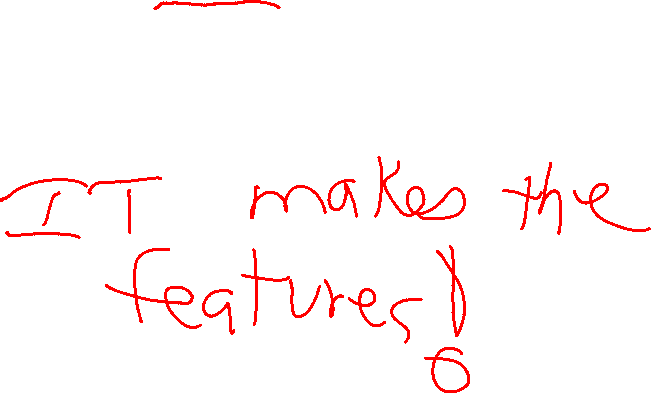 IT makes the
features!